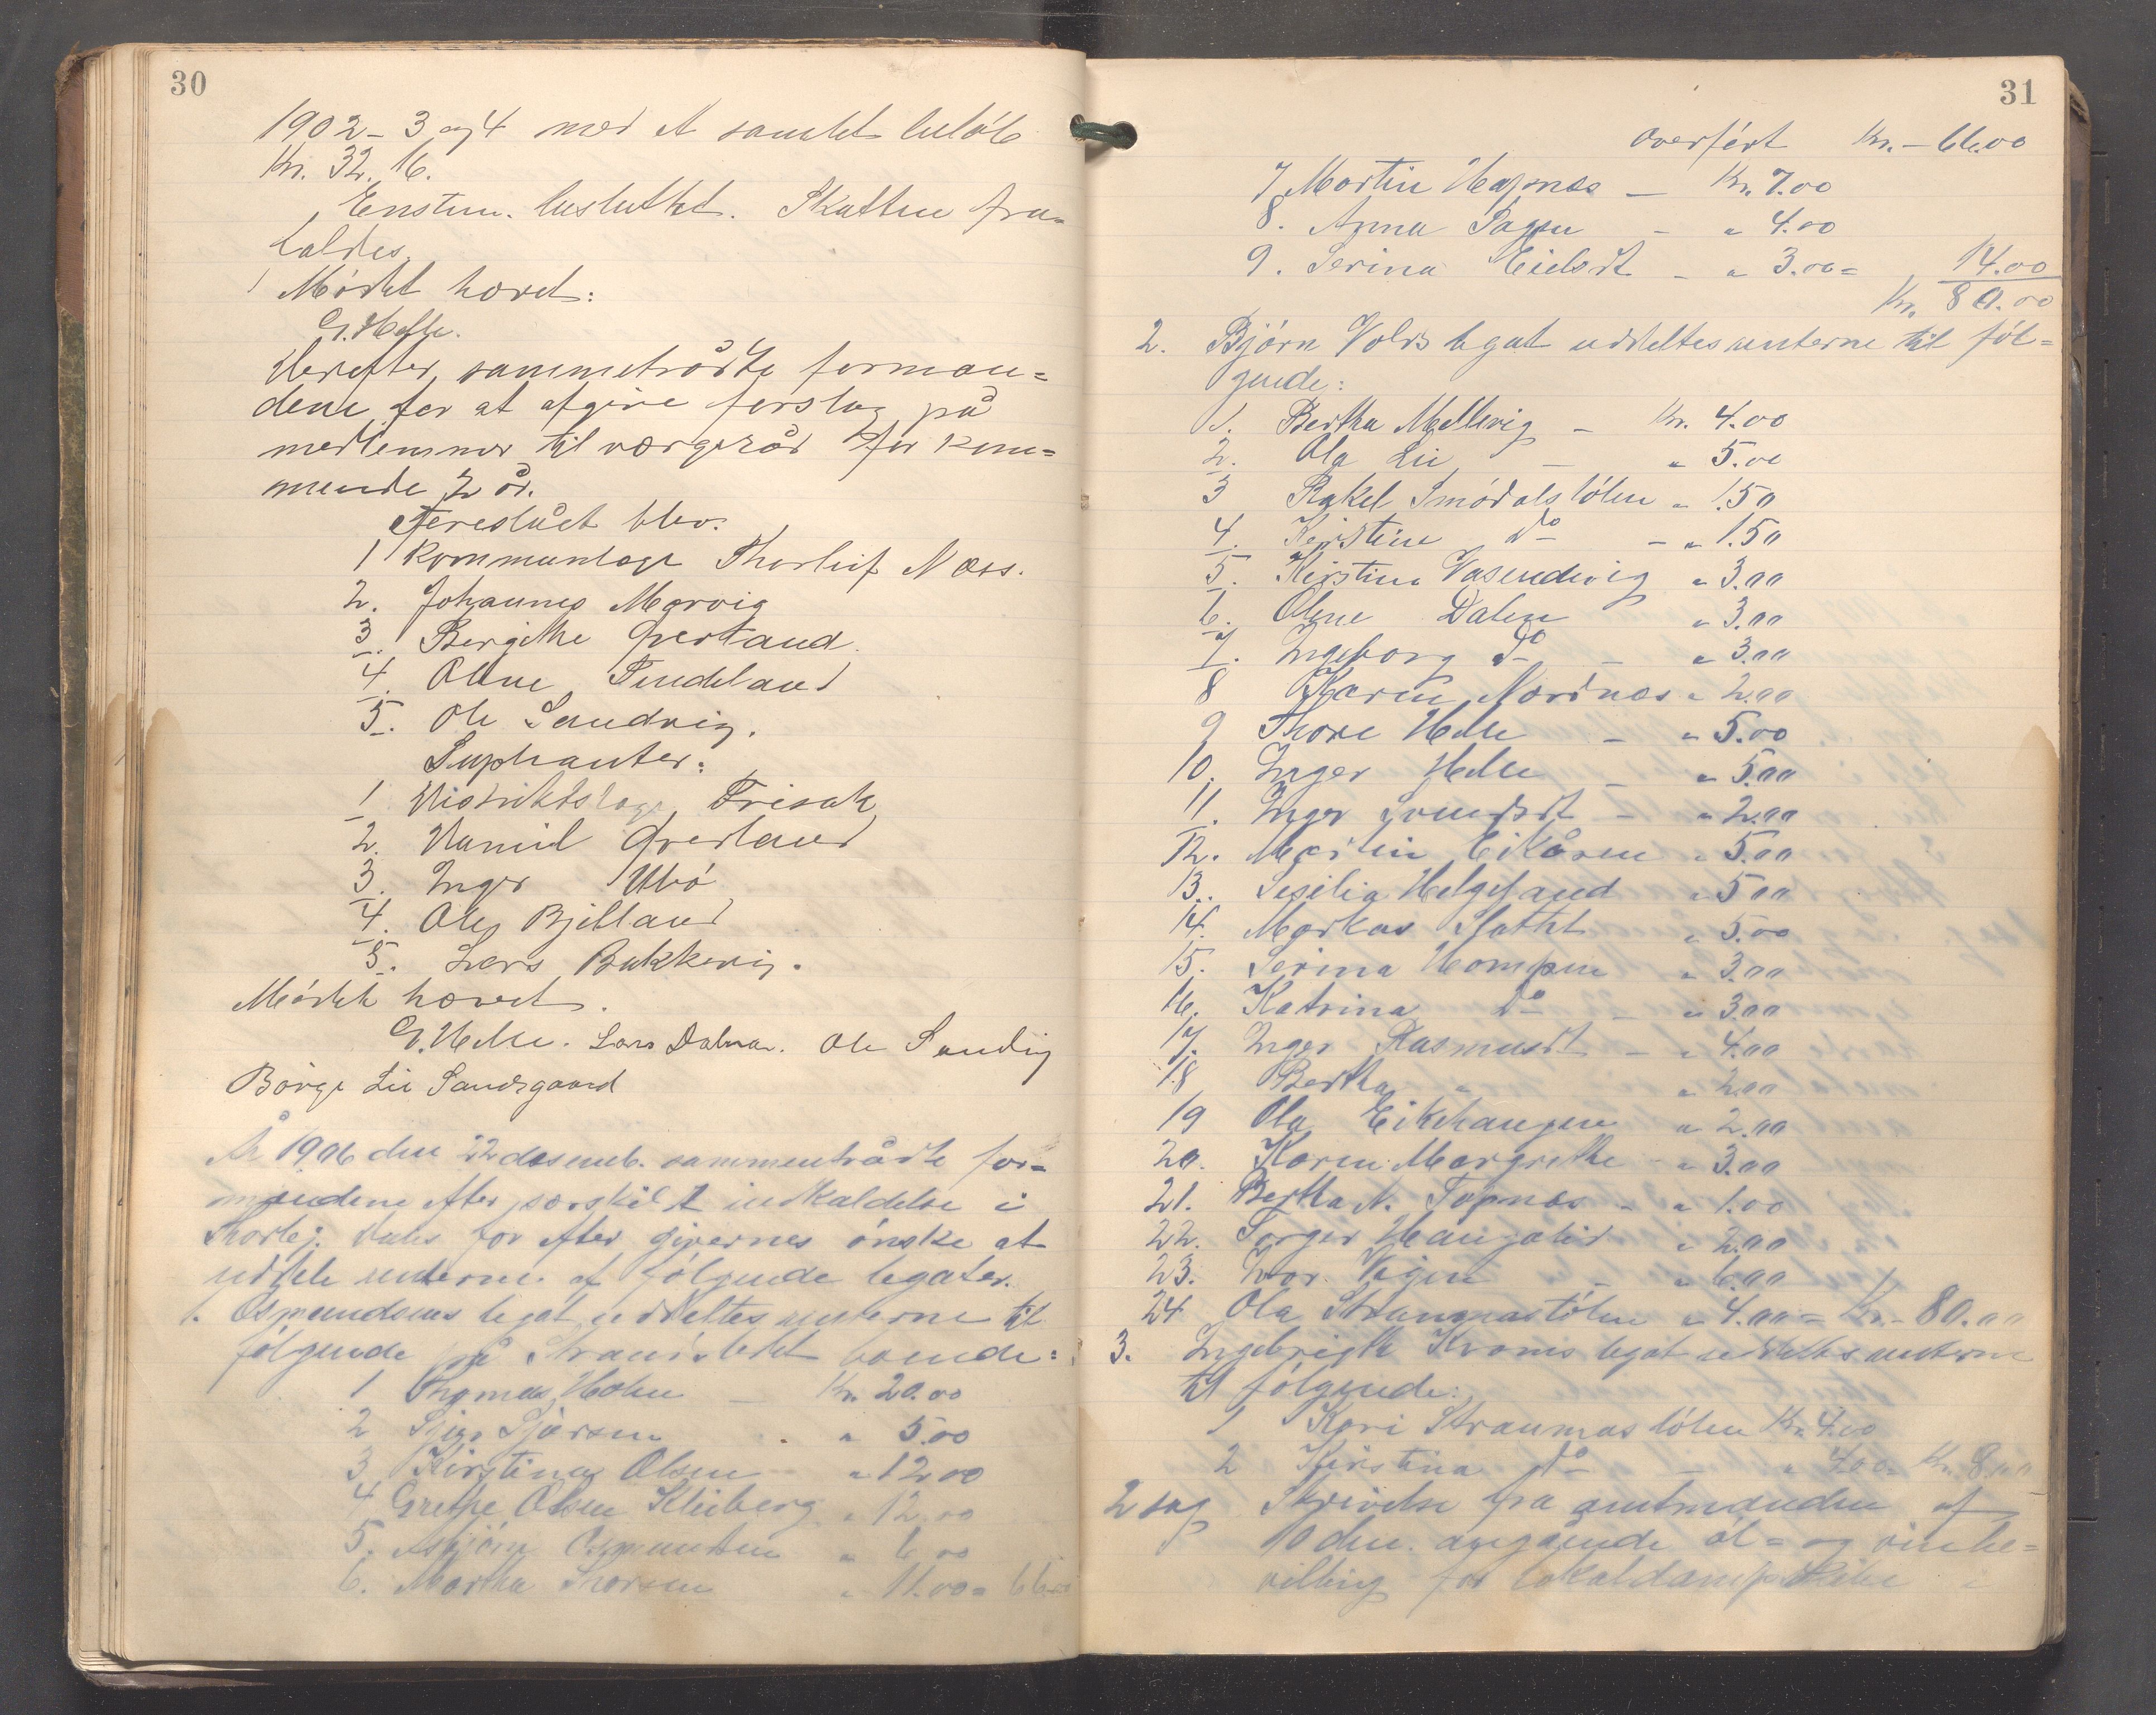 30
1902 - 3 og 4 med et samlet beløb
Kr. 32.16.
Enstem. besluttet. Skatten fra-
faldes.
Mødet hævet.
G. Helle.
Herefter sammetrådte forman=
dene for at afgive forslag på
medlemmer til værgeråd for kom=
mende 2 år.
Foreslået blev:
1 Kommunlæge Thorleif Næss.
2. Johannes Mærvig
3. Bergithe Qverland.
4. Oline Tendeland
5. Ole Sandvig.
Suplianter:
1 Distriktslæge Frisak
2. Daniel Qverland
3. Inger Ubø
4. Ole Bjelland
5. Lars Bakkevig.
Mødet hævet.
G. Helle. Lars Dalva. Ole Sandvig
Børge Lie Sandsgaard
År 1906 den 22 desemb. sammentrådte for=
mændene efter særskilt indkaldelse i
for efter givernes ønske at
uddele renterne af følgende legater.
1. Osmundsens legat uddeltes renterne til
følgende på Strandstedet boende:
1 Thomas Holm — Kr. 20.00
2 Sjørsen " 5.00
3 Kirstina Olsen " 12.00
4 Grethe Olsen Kleiberg " 12.00
5. Asbjørn Osmundsen " 6.00
6. Martha Thorsen " 11.00 = 66.00
31
Overført Kr. - 66.00
7 Martin Hapnes — Kr. 7.00
8. Anna - " 4.00
9. Serina Eielsdt - " 3.00 = 14.00
Kr. 80.00
2. Bjørn Volds legat uddeltes renterne til føl=
gende:
1. Bertha Mellevig - Kr. 4.00
2. Ola Lie — " 5.00
3 Rakel Smødalstølen " 1.50
4. Kirstine do - " 1.50
5. Kirstina Vasendvig " 3.00
6. Olene Dalen " 3.00
7. Ingeborg do - " 3.00
8 Karen Nordnæs " 2.00
9 Thore Helle - " 5.00
10. Inger Helle - " 5.00
11. Inger Svendsdt - " 2.00
12. Martin Eikåren " 5.00
13. Sesilia Helgeland " 5.00
14. Markus Slottet " 5.00
15. Serina Hompen " 3.00
16. Katrina do - " 3.00
17. Inger Rasmusdt - " 4.00
18 Bertha " " 2.00
19 Ola Eikehaugen " 2.00
20. Karen Margrethe - " 3.00
21. Bertha N. Tapnæs - " 1.00
22. Sørger Haugalid " 2.00
23. Ivar Vigen - " 6.00
24 Ola Straumastølen " 4.00 = Kr. - 80.00
3. Ingebrigth Kvams legat uddeltes renterne
til følgende:
1 Kari Straumastølen Kr. 4.00
2 Kirstina do - " 4.00 = Kr. 8.00
2 sag Skrivelse fra amtmanden af
10 den. angående øl= og vinbe=
villing for lokaldampskibe i